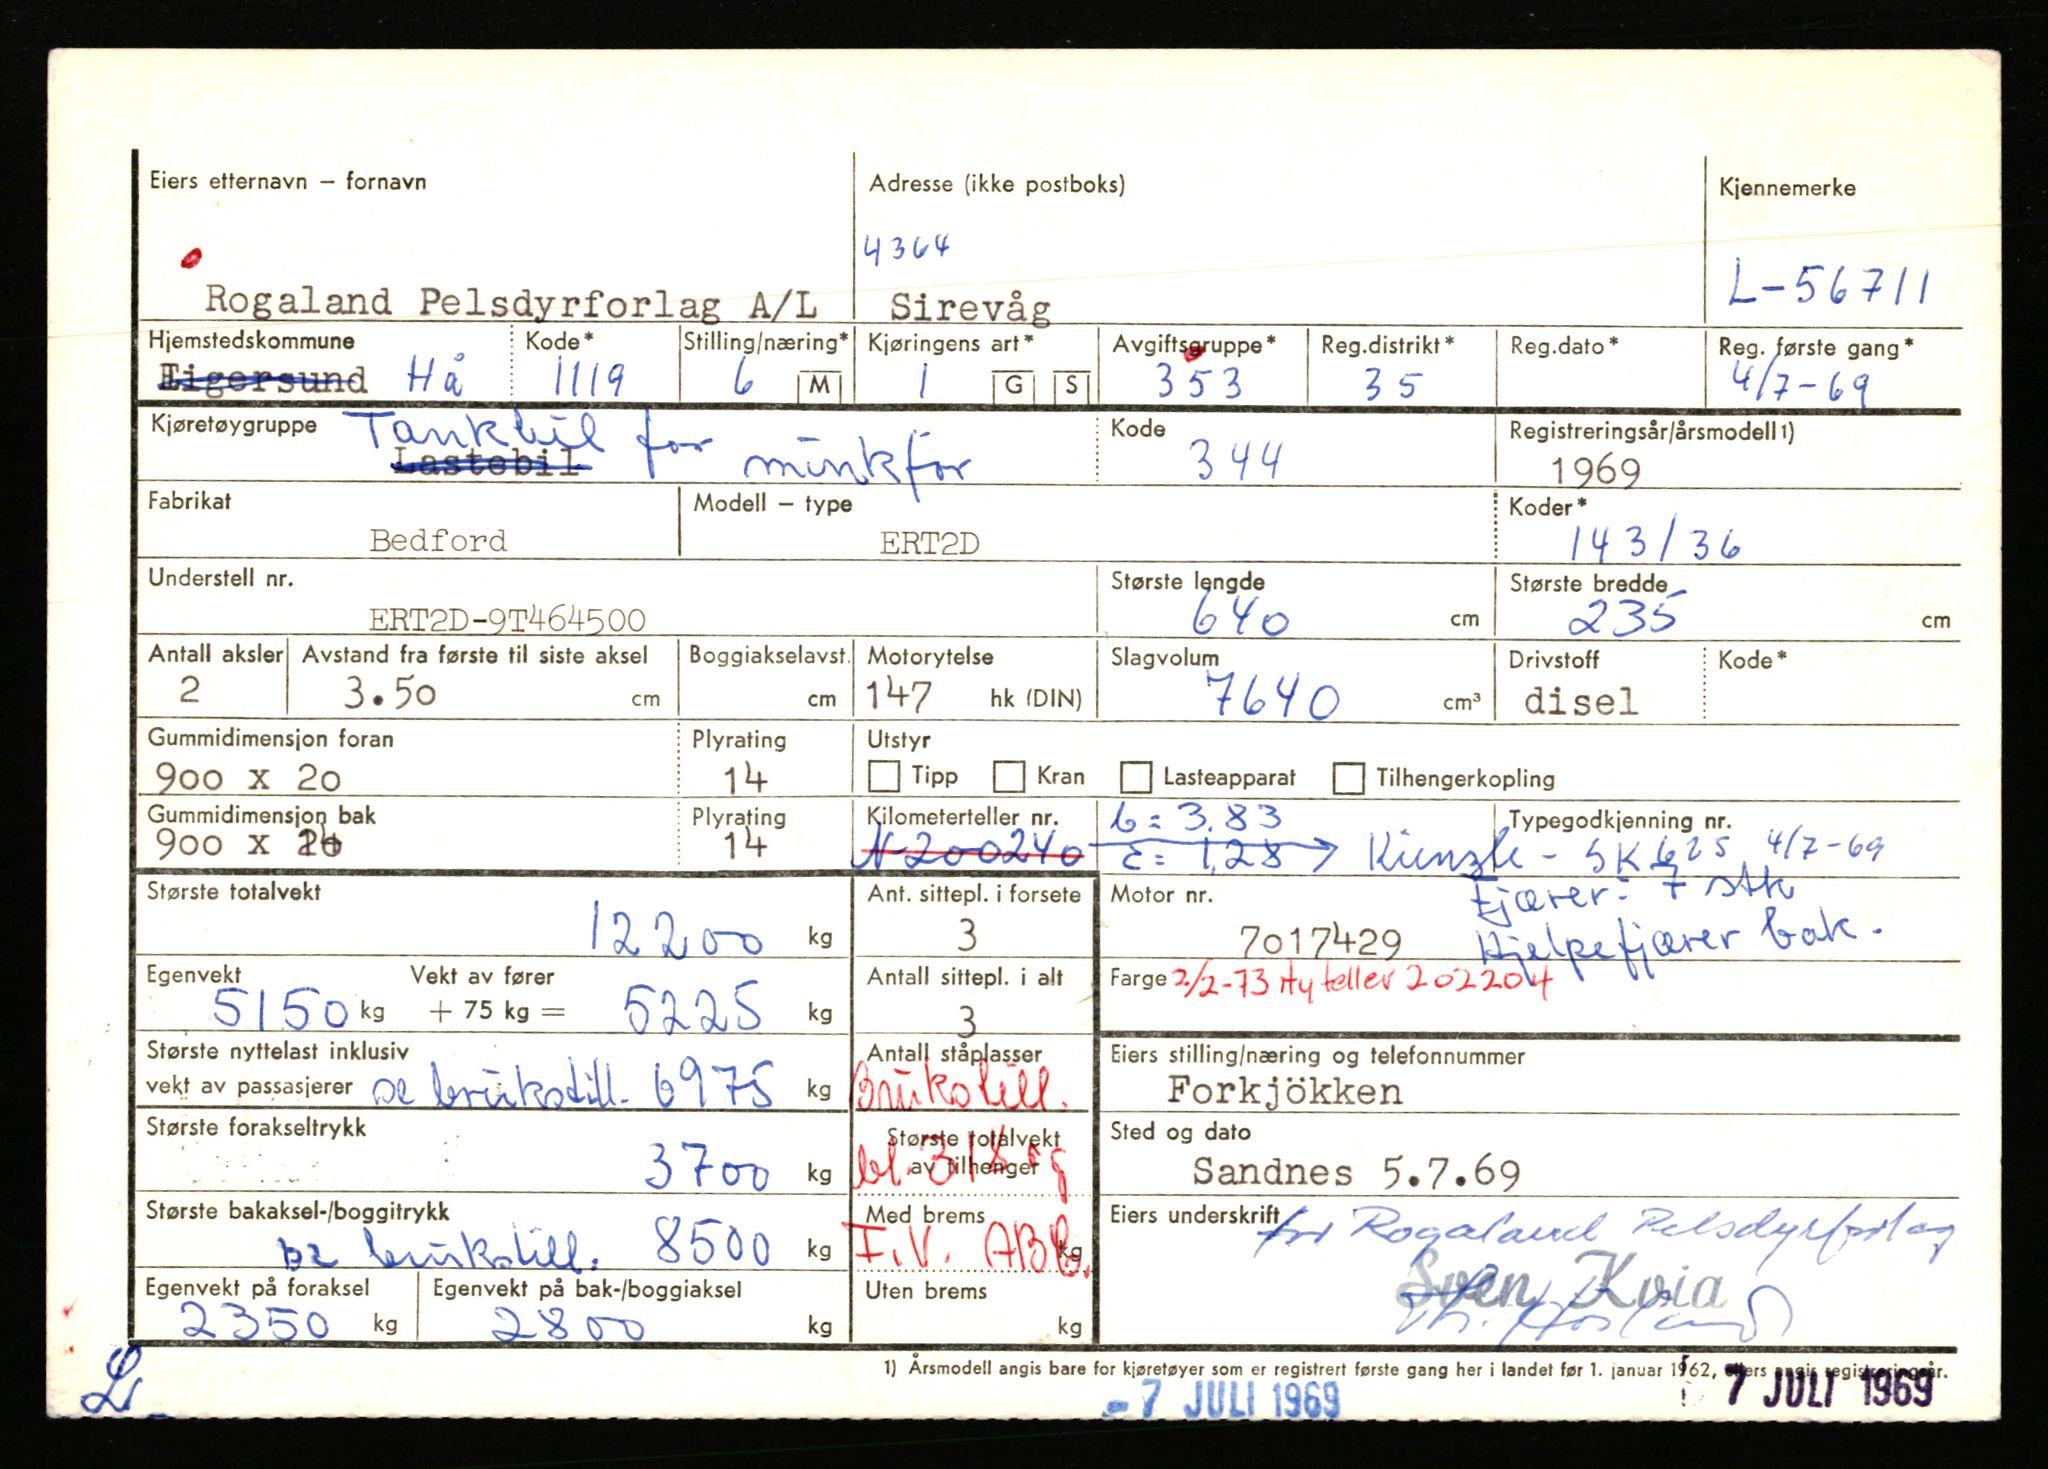 Eiers etternavn – fornavn
Adresse (ikke postboks)
Kjennemerke
4364
Rogaland Pelsdyrforlag A/L
Sirevåg
L-56711
Hjemstedskommune
Kode*
Stilling/næring*
Kjøringens art*
Avgiftsgruppe*
Reg.distrikt*
Reg.dato*
Reg. første gang*
Eigersund Hå
1119
6 M
1 G S
353
35
4/7-69
Kjøretøygruppe
Tankbil for minkfor
Lastebil
Kode
344
Registreringsår/årsmodell 1)
1969
Fabrikat
Bedford
Modell – type
ERT2D
Koder*
143/36
Understell nr.
ERT2D-9T464500
Største lengde
640 cm
Største bredde
235 cm
Antall aksler
2
Avstand fra første til siste aksel
3.50 cm
Boggiakselavst.
cm
Motorytelse
147 hk (DIN)
Slagvolum
7640 cm³
Drivstoff
disel
Kode*
Gummidimensjon foran
900 x 20
Plyrating
14
Utstyr
Tipp Kran Lasteapparat Tilhengerkopling
Gummidimensjon bak
900 x 20
Plyrating
14
Kilometerteller nr.
N-200240
b = 3.83
c = 1,28
Typegodkjenning nr.
Kienzle - SK 625 4/7-69
Største totalvekt
12200 kg
Ant. sittepl. i forsete
3
Motor nr.
7017429
Fjærer: 7 stk
Hjelpefjærer bak.
Egenvekt
5150 kg
Vekt av fører
+ 75 kg = 5225 kg
Antall sittepl. i alt
3
Farge
2/2-73 Ny teller 202204
Største nyttelast inklusiv
vekt av passasjerer se brukstill. 6975 kg
Antall ståplasser
Brukstill.
Eiers stilling/næring og telefonnummer
Forkjökken
Største forakseltrykk
3700 kg
Største totalvekt
av tilhenger
bl. 318 og
Sted og dato
Sandnes 5.7.69
Største bakaksel-/boggitrykk
se brukstill. 8500 kg
Med brems
kg
I.V.
Eiers underskrift
for Rogaland Pelsdyrforlag
Sven Kvia
Egenvekt på foraksel
2350 kg
Egenvekt på bak-/boggiaksel
2800 kg
Uten brems
kg
1) Årsmodell angis bare for kjøretøyer som er registrert første gang her i landet før 1. januar 1962, ellers angis registreringsår.
- 7 JULI 1969
7 JULI 1969